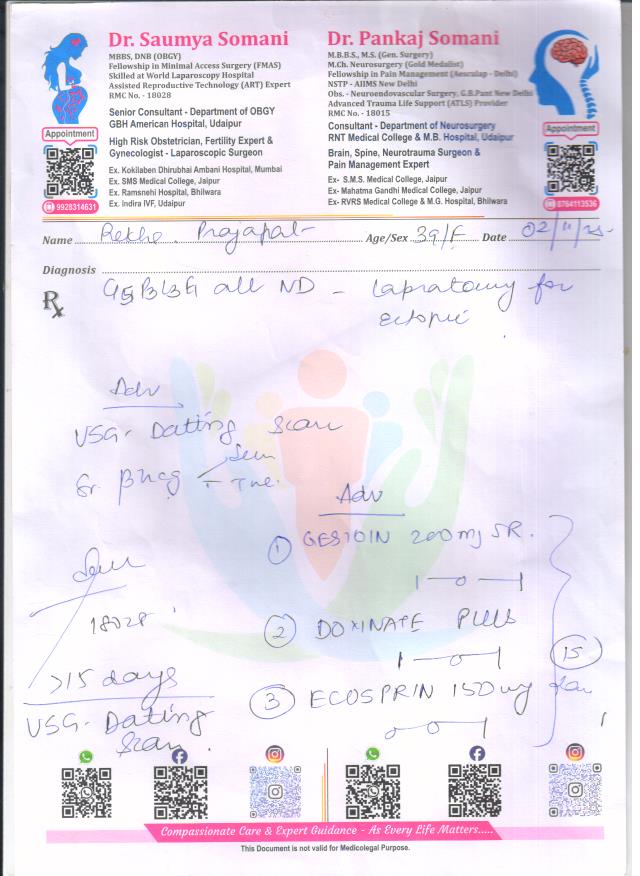 Dr. Saumya Somani
MBBS, DNB (OBGY)
Fellowship in Minimal Access Surgery (FMAS)
Skilled at World Laparoscopy Hospital
Assisted Reproductive Technology (ART) Expert
RMC No. - 18028
Senior Consultant - Department of OBGY
GBH American Hospital, Udaipur
High Risk Obstetrician, Fertility Expert &
Gynecologist - Laparoscopic Surgeon
Ex. Kokilaben Dhirubhai Ambani Hospital, Mumbai
Ex. SMS Medical College, Jaipur
Ex. Ramsnehi Hospital, Bhilwara
Ex. Indira IVF, Udaipur
Appointment
9928314631
Dr. Pankaj Somani
M.B.B.S., M.S. (Gen. Surgery)
M.Ch. Neurosurgery (Gold Medalist)
Fellowship in Pain Management (Aesculap - Delhi)
NSTP - AIIMS New Delhi
Obs. - Neuroendovascular Surgery, G.B.Pant New Delhi
Advanced Trauma Life Support (ATLS) Provider
RMC No. - 18015
Consultant - Department of Neurosurgery
RNT Medical College & M.B. Hospital, Udaipur
Brain, Spine, Neurotrauma Surgeon &
Pain Management Expert
Ex- S.M.S. Medical College, Jaipur
Ex- Mahatma Gandhi Medical College, Jaipur
Ex- RVRS Medical College & M.G. Hospital, Bhilwara
Appointment
8764113536
Name Rekha Prajapat Age/Sex 39/F Date 02/11/25
Diagnosis
Rx
all ND - Lapratomy for
Ectopic
Adv
USG- Datting Scan
Sr. βhcg
Adv
① GESTOIN 200mg SR.
② DOXINATE PLUS
③ ECOSPRIN 150mg
15
18028
>15 days
USG- Datting
Scan.
Compassionate Care & Expert Guidance - As Every Life Matters.....
This Document is not valid for Medicolegal Purpose.